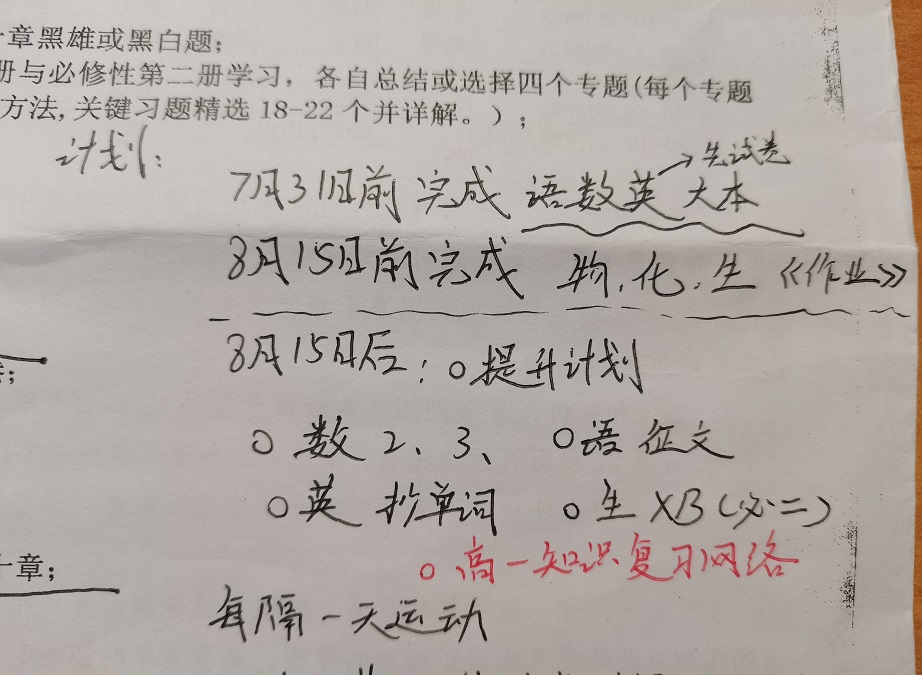 十章黑雄或黑白题;
册与必修性第二册学习，各自总结或选择四个专题(每个专题
方法,关键习题精选18-22个并详解。);
计划:
→先试卷
7月31日前完成 语数英 大本
8月15日前完成 物.化.生《作业》
8月15日后: ○提升计划
○ 数 2、3、 ○语 征文
○英 抄单词 ○生 XB(必二)
○ 高一知识复习网络
十章;
每隔一天运动